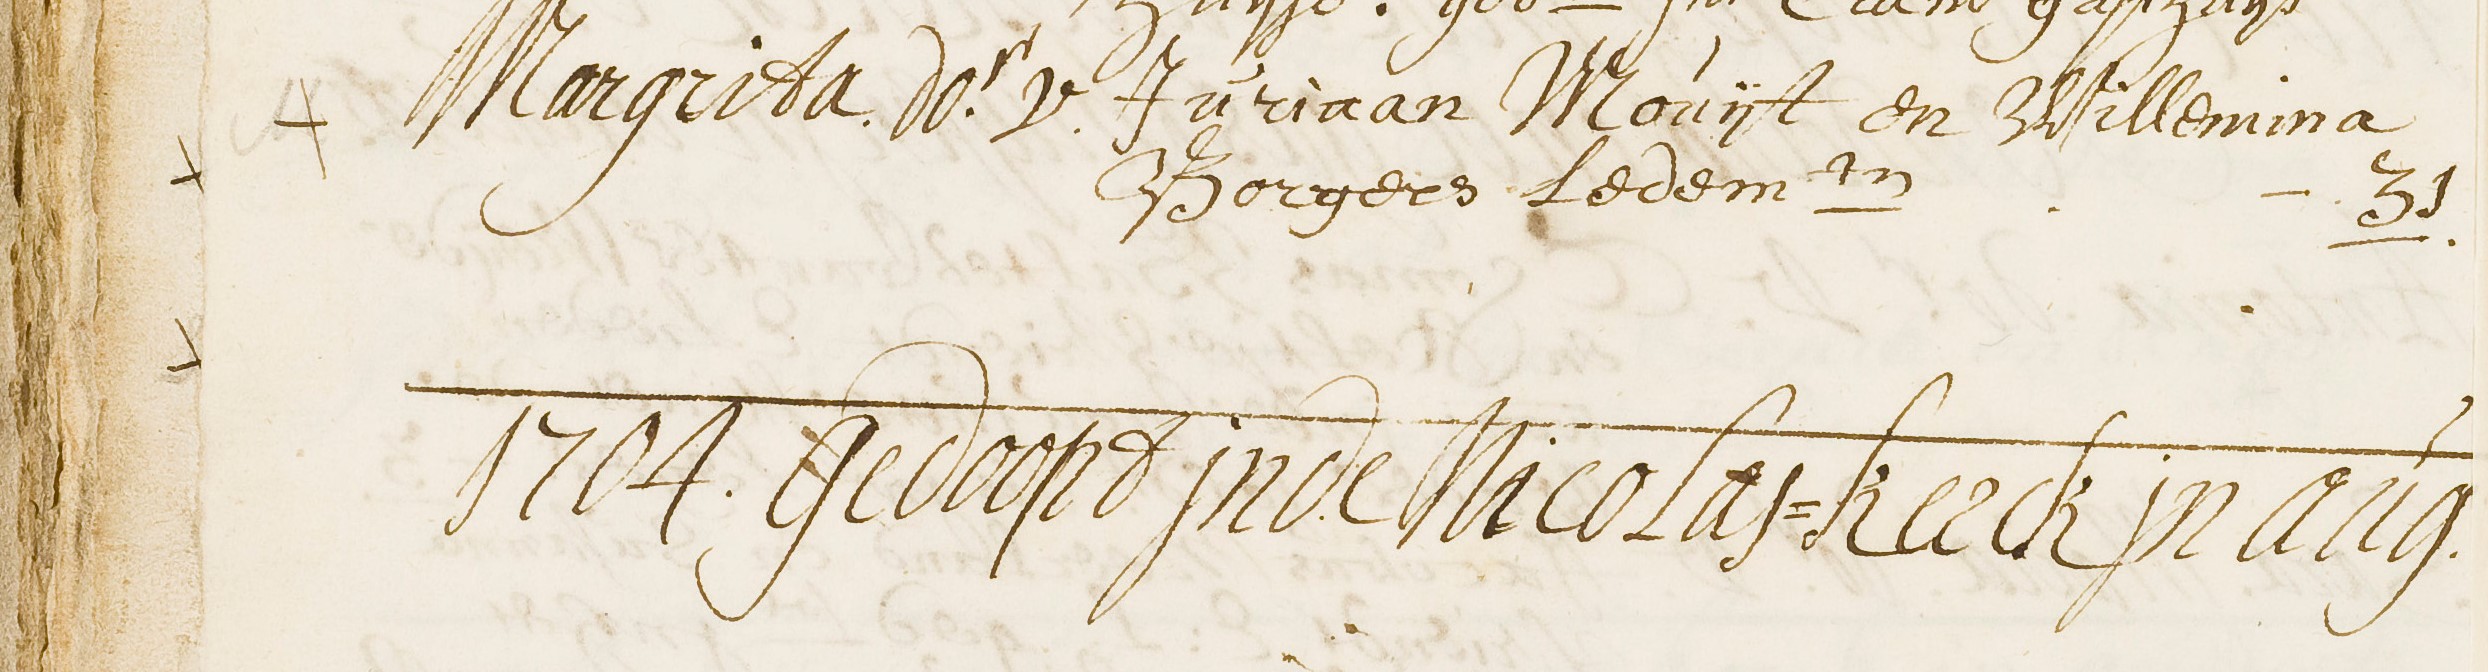 Margrita. do.r v. Juriaan Moúijt en Willemina
Borgers Ledem tn - 31.
1704. gedoopt in de Nicolas=kerck jn aúg.